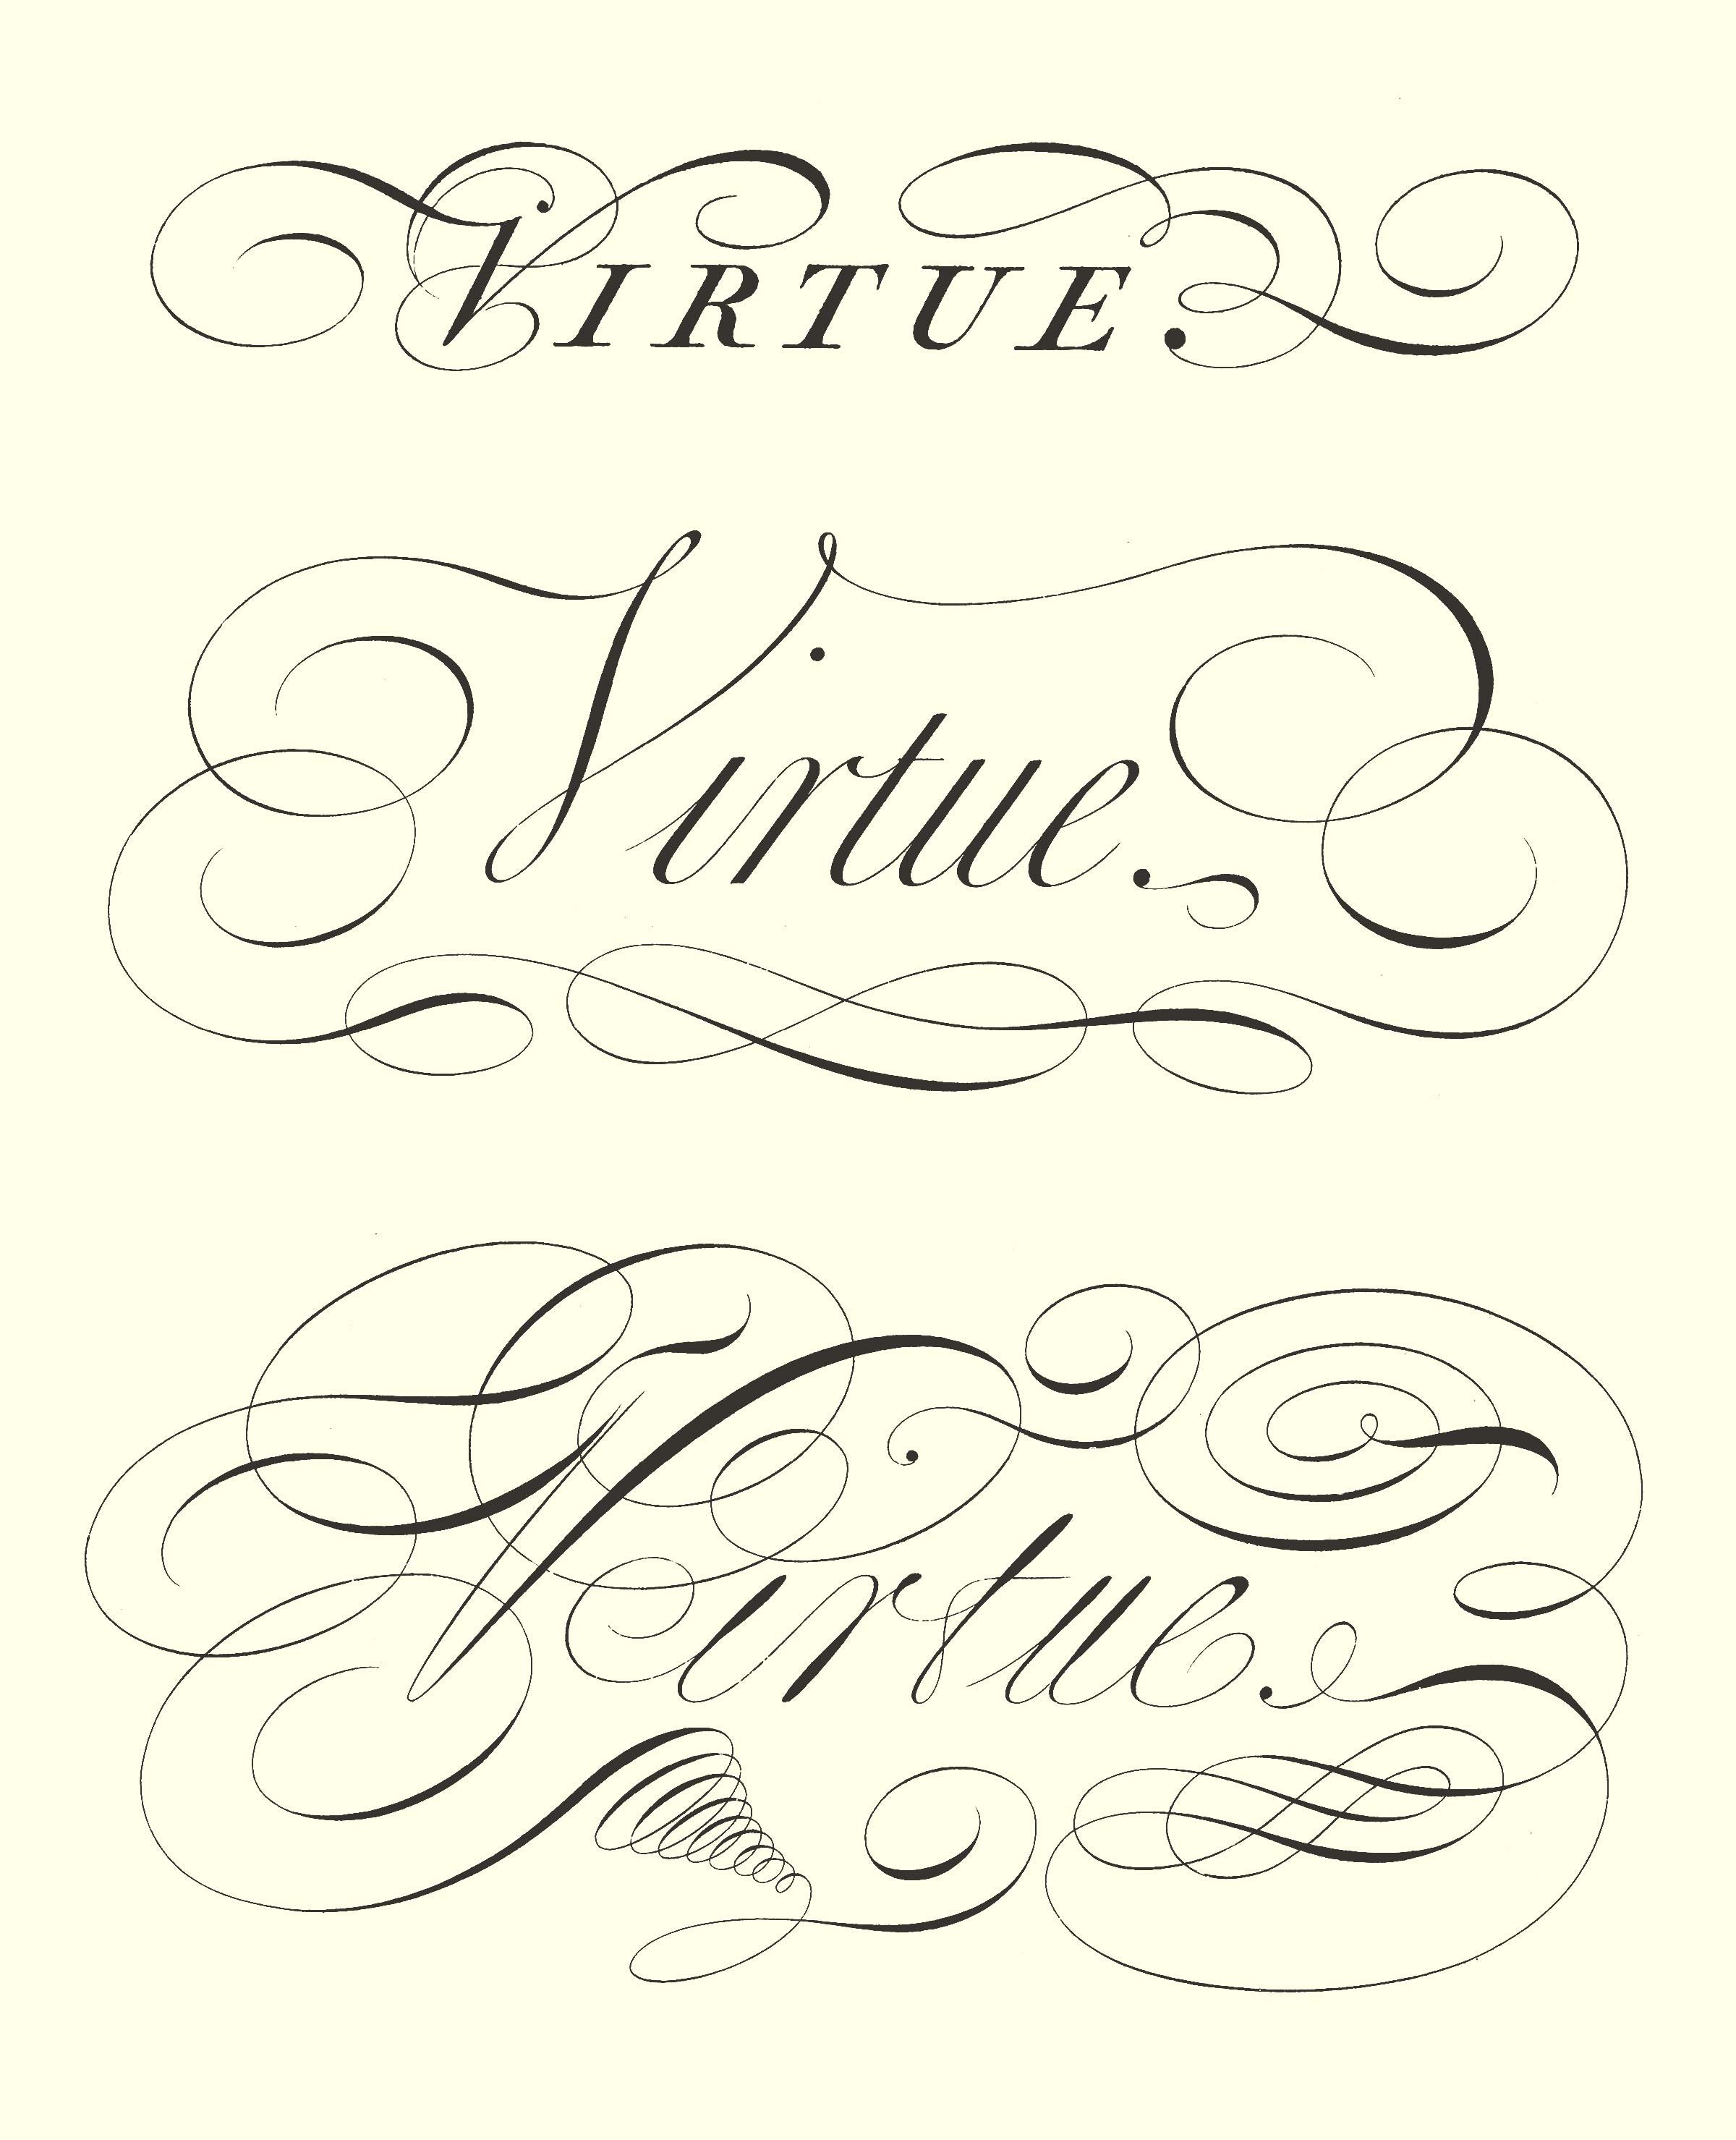 VIRTUE.
Virtue.
Virtue.